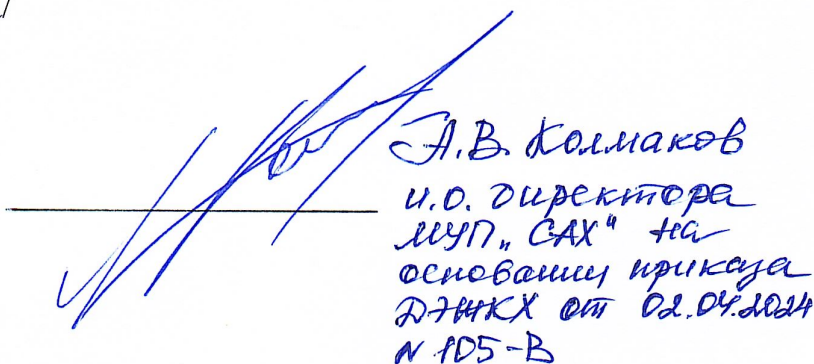 А.В. Колмаков
и.о. директора
МУП „САХ" на
основании приказа
ДЖКХ от 02.04.2024
N 105-В